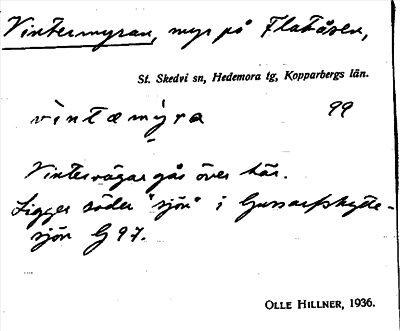 Vintermyran, myr på Flatåsen,
St. Skedvi sn, Hedemora tg, Kopparbergs län.
vìntæmỳra 99
Vintervägar går över här.
Ligger söder "sjön" i Gussarfshytte-
sjön G 97.
OLLE HILLNER, 1936.